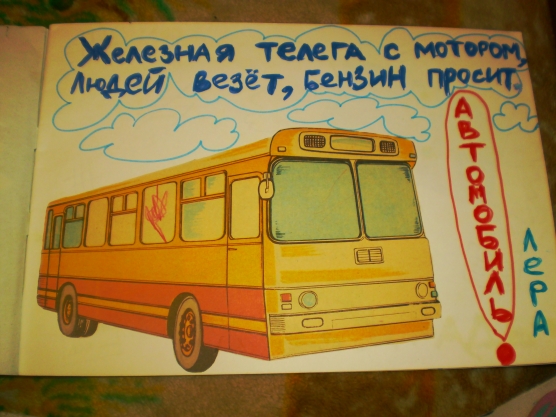 Железная телега с мотором,
людей везёт, бензин просит.
АВТОМОБИЛЬ
ЛЕРА